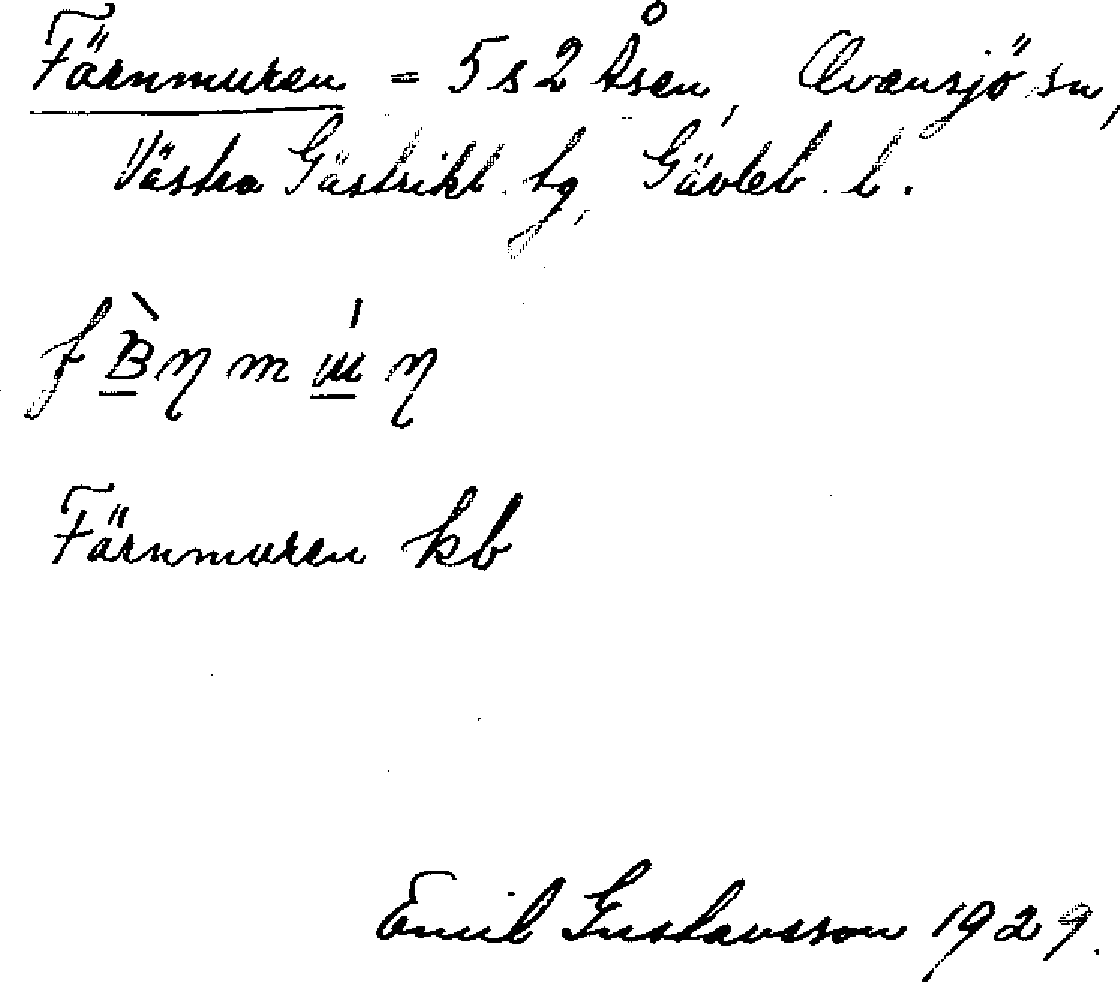 Färnmuren = 5 s 2 Åsen, Ovansjö sn,
Västra Gästrikl. tg, Gävleb. l.
Färnmuren kb
Emil Gustavsson 1929.